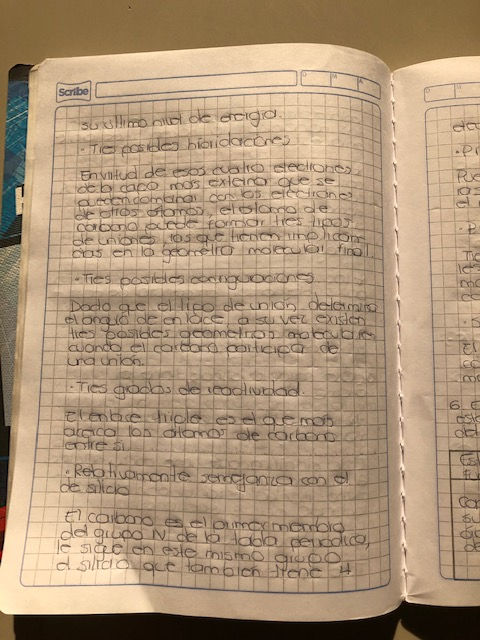 Scribe
D M A
su último nivel de energia.
· Tres posibles hibridaciones
En virtud de esos cuatro electrones
de la capa mas externa que se
pueden combinar con los electrones
de otros atomos, el atomo de
carbono puede formar tres tipos
de uniones los que tienen implican
cias en la geometria molecular final.
· Tres posibles configuraciones
Dado que el tipo de unión determina
el angulo de enlace, a su vez existen
tres posibles geometrias moleculares
cuando el carbono participa de
una unión.
· Tres grados de reactividad.
El enlace triple es el que mas
acerca los atomos de carbono
entre si.
· Relativamente semejanza con el
de silicio
El carbono es el primer miembro
del grupo IV de la tabla periodica,
le sigue en este mismo grupo
el silicio que tambien tiene 4